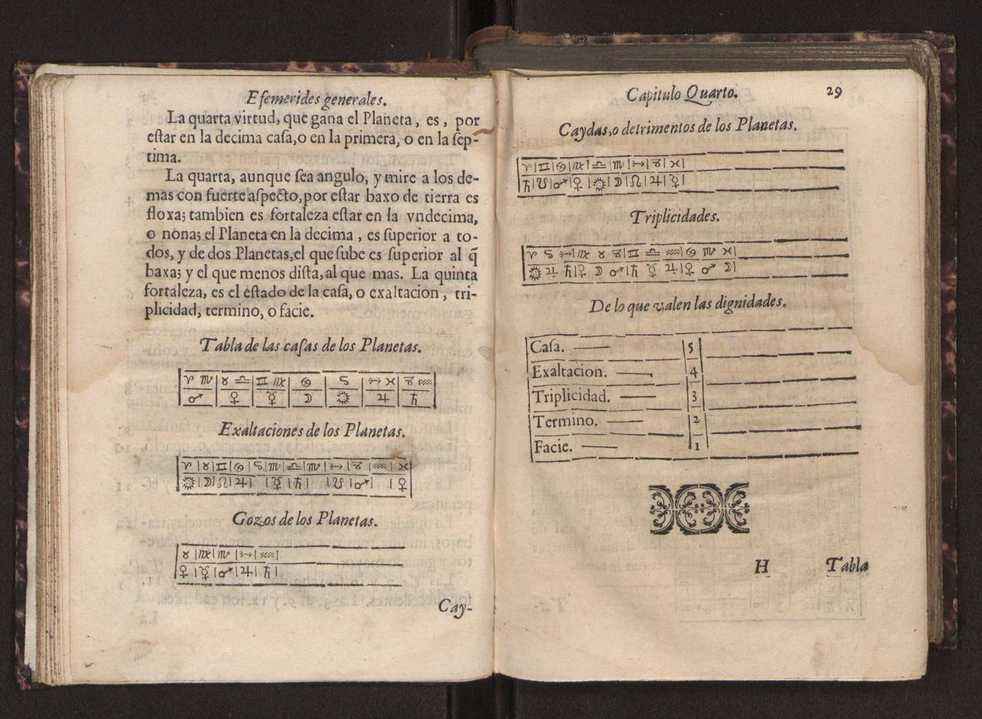 Efemerides generales.
La quarta virtud, que gana el Planeta, es, por
eſtar en la decima caſa, o en la primera, o en la ſep-
tima.
La quarta, aunque ſea angulo, y mire a los de-
mas con fuerte aſpecto, por eſtar baxo de tierra es
floxa; tambien es fortaleza eſtar en la vndecima,
o nona; el Planeta en la decima, es ſuperior a to-
dos, y de dos Planetas, el que ſube es ſuperior al q̃
baxa; y el que menos diſta, al que mas. La quinta
fortaleza, es el eſtado de la caſa, o exaltacion, tri-
plicidad, termino, o facie.
Tabla de las caſas de los Planetas.
♈ ♏ | ♉ ♎ | ♊ ♍ | ♋ | ♌ | ♐ ♓ | ♑ ♒
♂ | ♀ | ☿ | ☽ | ☉ | ♃ | ♄
Exaltaciones de los Planetas.
♈ | ♉ | ♊ | ♋ | ♌ | ♍ | ♎ | ♏ | ♐ | ♑ | ♒ | ♓
Gozos de los Planetas.
♉ | ♍ | ♏ | ♐ | ♒
♀ | ☿ | ♂ | ♃ | ♄
Cay-
Capitulo Quarto. 29
Caydas, o detrimentos de los Planetas.
♈ | ♊ | ♋ | ♍ | ♎ | ♏ | ♐ | ♑ | ♓
♄ | ☋ | ♂ | ♀ | ☉ | ☽ | ☊ | ♃ | ☿
Triplicidades.
♈ ♌ ♐ | ♍ ♑ ♉ | ♊ ♎ ♒ | ♋ ♏ ♓
☉ ♃ ♄ | ♀ ☽ ♂ | ♄ ☿ ♃ | ♀ ♂ ☽
De lo que valen las dignidades.
Caſa. 5
Exaltacion. 4
Triplicidad. 3
Termino. 2
Facie. 1
H Tabla